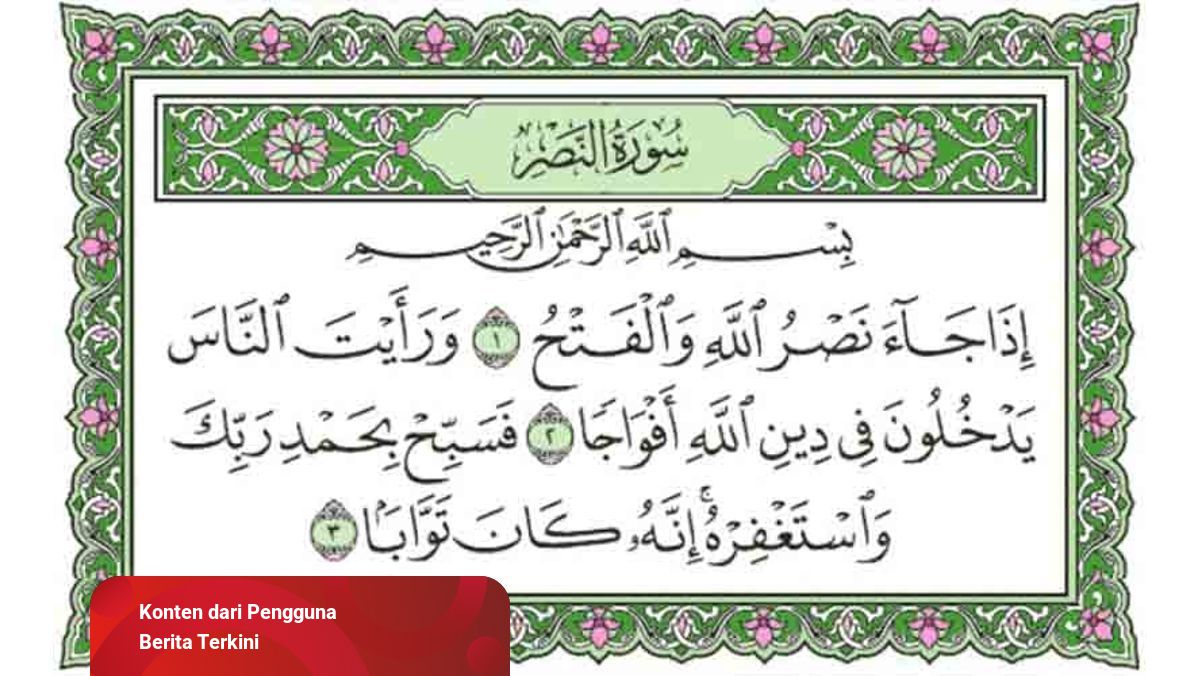 سُورَةُ النَّصْرِ
بِسْمِ ٱللَّهِ ٱلرَّحْمَٰنِ ٱلرَّحِيمِ
إِذَا جَآءَ نَصْرُ ٱللَّهِ وَٱلْفَتْحُ ١ وَرَأَيْتَ ٱلنَّاسَ
يَدْخُلُونَ فِى دِينِ ٱللَّهِ أَفْوَاجًا ٢ فَسَبِّحْ بِحَمْدِ رَبِّكَ
وَٱسْتَغْفِرْهُ ۚ إِنَّهُۥ كَانَ تَوَّابًۢا ٣
Konten dari Pengguna
Berita Terkini